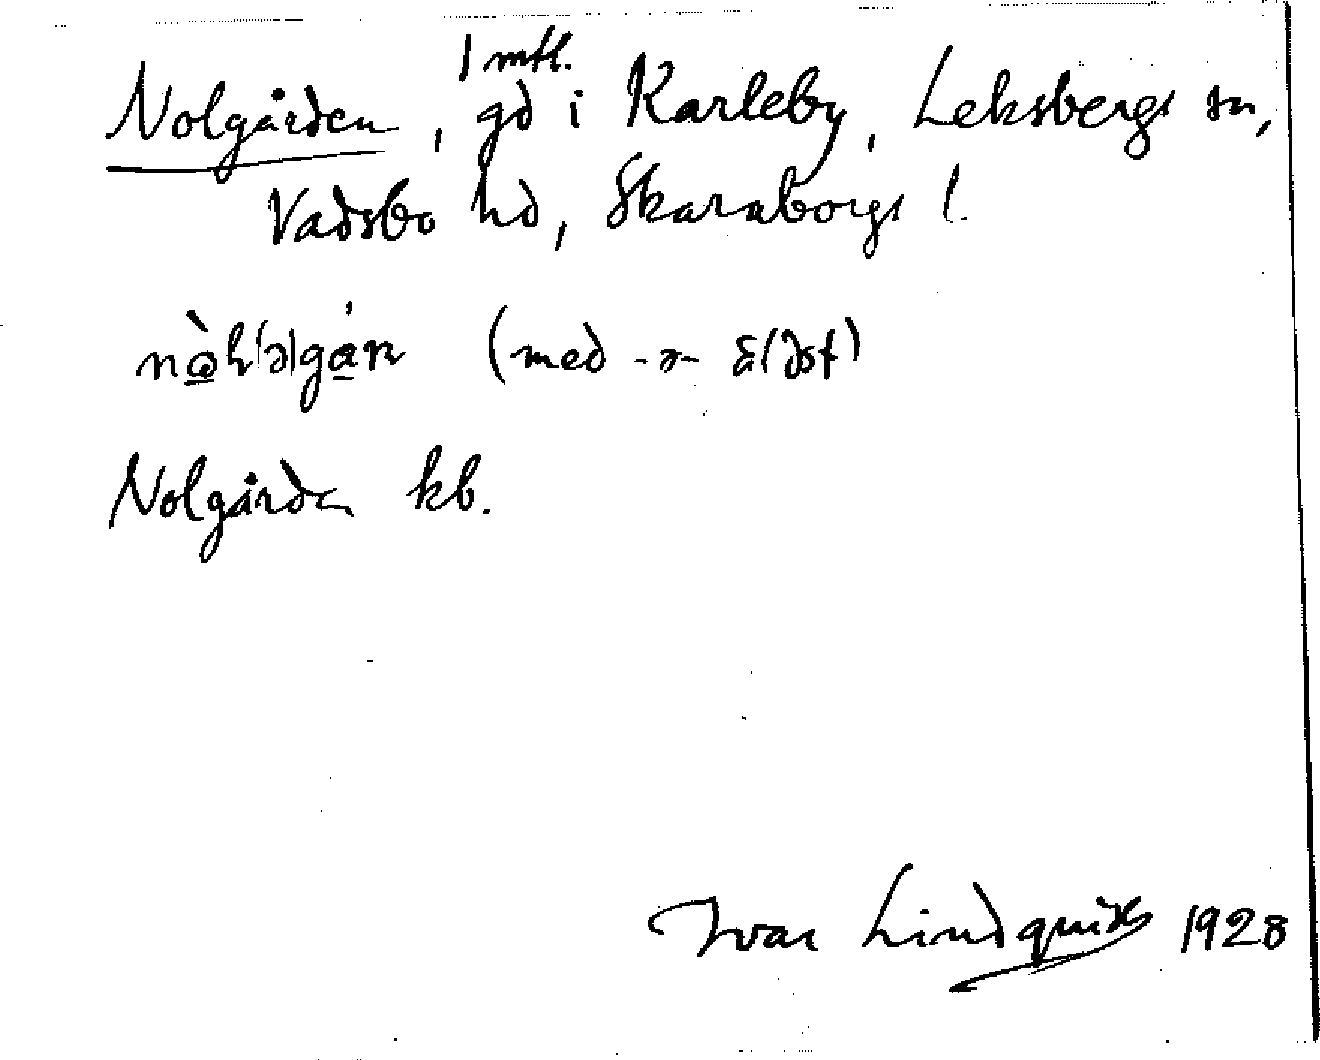 Nolgården, 1 mtl. gd i Karleby, Leksbergs sn,
Vadsbo hd, Skaraborgs l.
(med -ə- äldst)
Nolgården kb.
Ivar Lindquist 1928